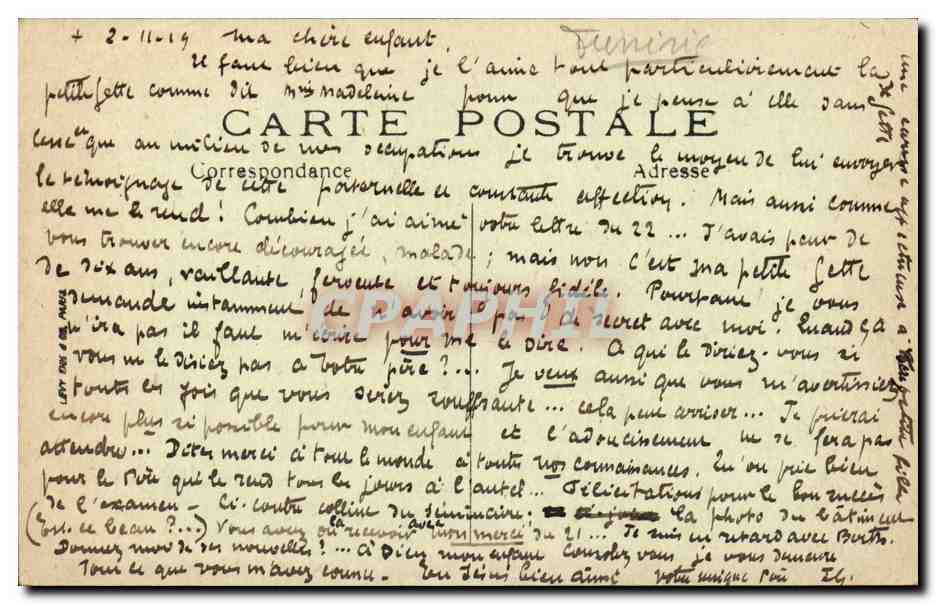 + 2-11-19 Ma chère enfant,
Tunisie
Il faut bien que je l'aime tout particulièrement la
petite Gette comme dit Mme Madeleine pour que je pense à elle sans
CARTE POSTALE
cesse et que au milieu de mes occupations je trouve le moyen de lui envoyer
Correspondance Adresse
le témoignage de cette paternelle et constante affection. Mais aussi comme
elle me le rend! Combien j'ai aimé votre lettre du 22... J'avais peur de
vous trouver encore découragée, malade; mais non c'est ma petite Gette
de dix ans, vaillante, fervente et toujours fidèle. Pourtant je vous
demande instamment de n'avoir pas de secret avec moi. Quand ça
n'ira pas il faut m'écrire pour me le dire. A qui le diriez-vous si
vous ne le disiez pas à votre père?... Je veux aussi que vous m'avertissiez
toutes les fois que vous serez souffrante... cela peut arriver... Je prierai
encore plus si possible pour mon enfant et l'adoucissement ne se fera pas
attendre... Dites merci à tout le monde à toutes nos connaissances. Qu'on prie bien
pour le Père qui le rend tous les jours à l'autel... Félicitations pour le bon succès
de l'examen - Ci-contre colline du séminaire. la photo du bâtiment
(Est-ce beau?...) Vous avez dû la recevoir avec mon merci du 21... Je suis en retard avec Berthe.
Donnez moi de ses nouvelles?... à Dieu mon enfant Consolez vous je vous demeure
Tout ce que vous m'avez connu - En Jésus bien aimé votre unique Père
une caresse affectueuse à
petite fille
LEVY FILS & CIE, PARIS
CPAPHIL